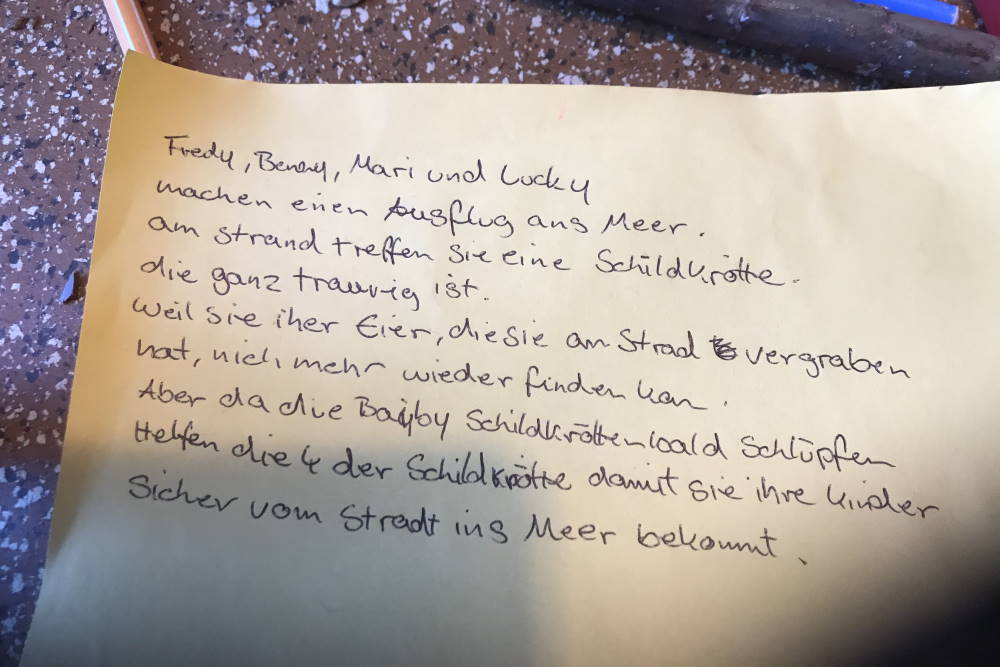 Fredy, Benny, Mari und Lucky
machen einen Ausflug ans Meer.
am strand treffen sie eine Schildkrötte.
die ganz traurig ist.
Weil sie iher Eier, die sie am Strad vergraben
hat, nich mehr wieder finden kan.
Aber da die Bayby Schildkrötten bald Schlüpfen
Helfen die 4 der Schildkrötte damit sie ihre Kinder
Sicher vom Stradt ins Meer bekommt.